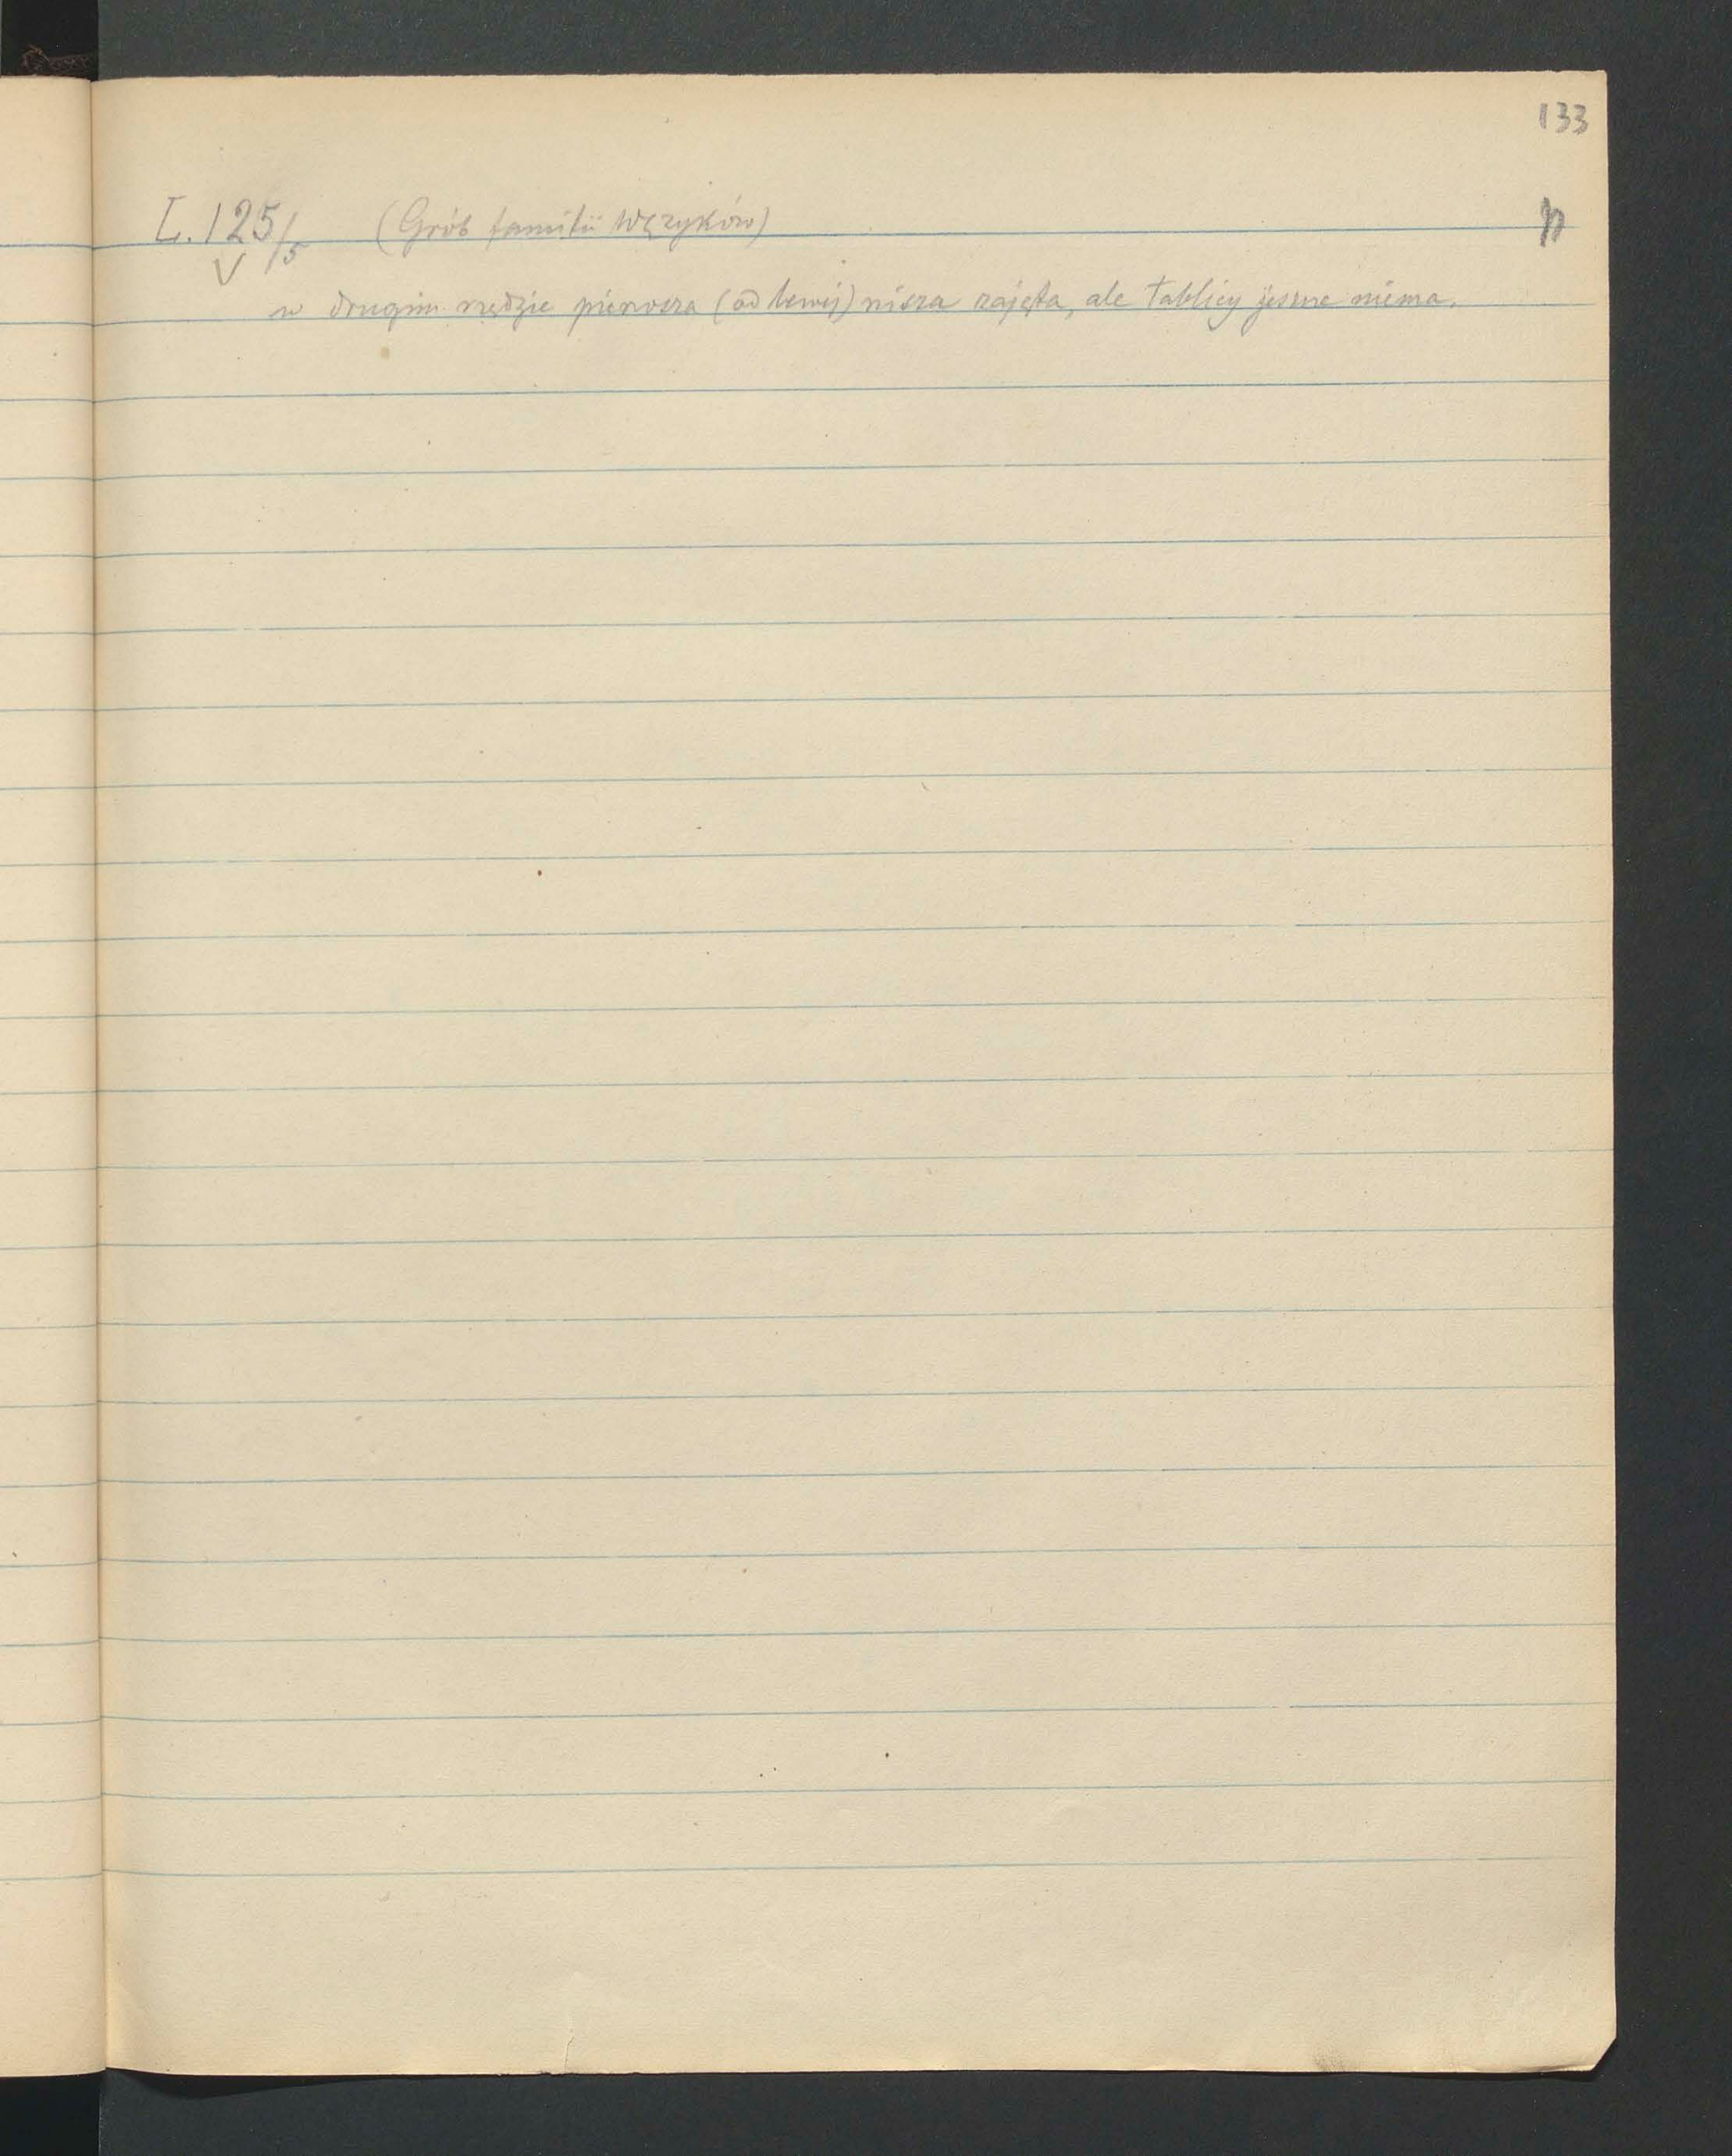 133
L. 125/5 (Grób familii Wężyków) n
w drugim rzędzie pierwsza (od lewej) nisza zajęta, ale tablicy jeszcze niema.